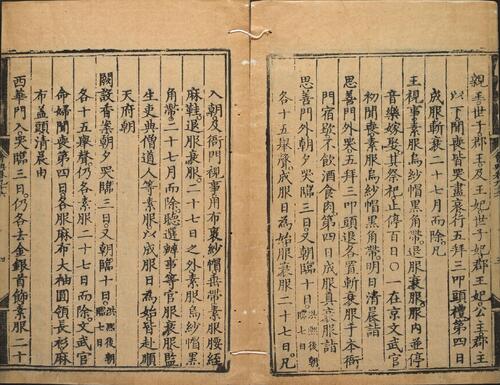 親王世子郡王及王妃世子妃郡王妃公主郡主
以下聞喪皆哭盡哀行五拜三叩頭禮第四日
成服斬衰二十七月而除凡
王視事素服烏紗帽黑角帶退服衰服服內並停
音樂嫁娶其祭祀止停百日○一在京文武官
初聞喪素服烏紗帽黑角帶明日清晨詣
思善門外哭五拜三叩頭退各置斬衰服于本衙
門宿歇不飲酒食肉第四日成服具衰服詣
思善門外朝夕哭臨三日又朝臨十日洪熙後朝臨七日
各十五舉聲成服日為始服衰服二十七日凡
入朝及衙門視事用布裹紗帽垂帶素服腰絰
麻鞋退服衰服二十七日之外素服烏紗帽黑
角帶二十七月而除聽選辦事等官服衰服監
生吏典僧道人等素服以成服日為始皆赴順
天府朝
闕設香案朝夕哭臨三日又朝臨十日洪熙後朝臨七日
各十五舉聲仍各素服二十七日而除文武官
命婦聞喪第四日各服麻布大袖圓領長衫麻
布蓋頭清晨由
西華門入哭臨三日仍各去金銀首飾素服二十